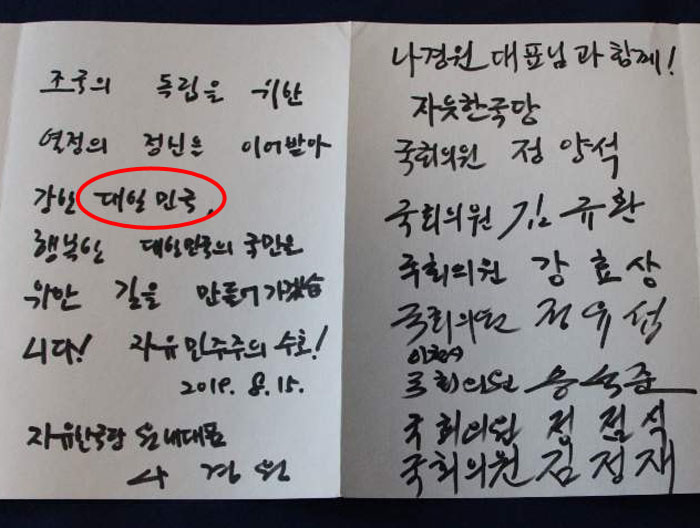 조국의 독립을 위한
열정의 정신을 이어받아
강한 대일민국,
행복한 대일민국의 국민을
위한 길을 만들어가겠습
니다! 자유민주주의 수호!
2019. 8. 15.
자유한국당 원내대표
나 경 원
나경원 대표님과 함께!
자유한국당
국회의원 정 양 석
국회의원 김 규 환
국회의원 강 효 상
국회의원 정 유 섭
국회의원 송 석 준
국회의원 정 점 식
국회의원 김 정 재